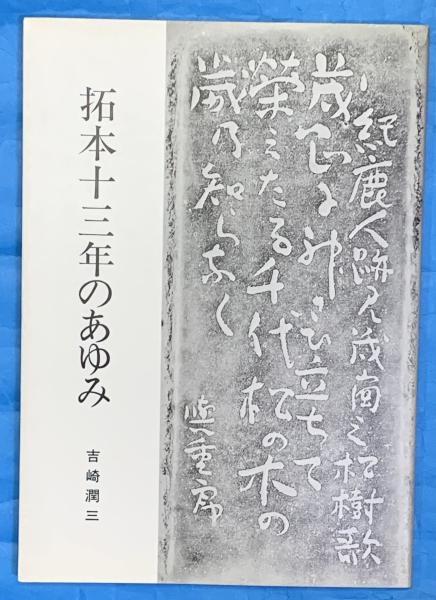 拓本十三年のあゆみ
吉崎潤三
紀鹿人跡見茂岡之松樹歌
茂岡に神さび立ちて
栄えたる千代松の木の
歳乃知らなく
與重郎